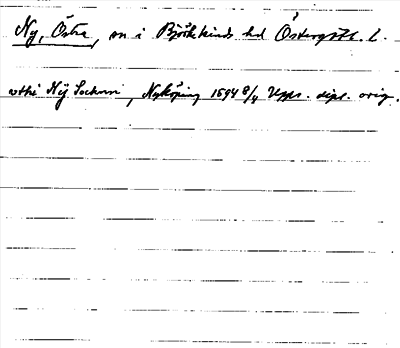 Ny, Östra, sn i Björkekinds hd Östergötl. l.
vthi Nÿ Socknn, Nyköping 1594 8/4 Upps. dipl. orig.